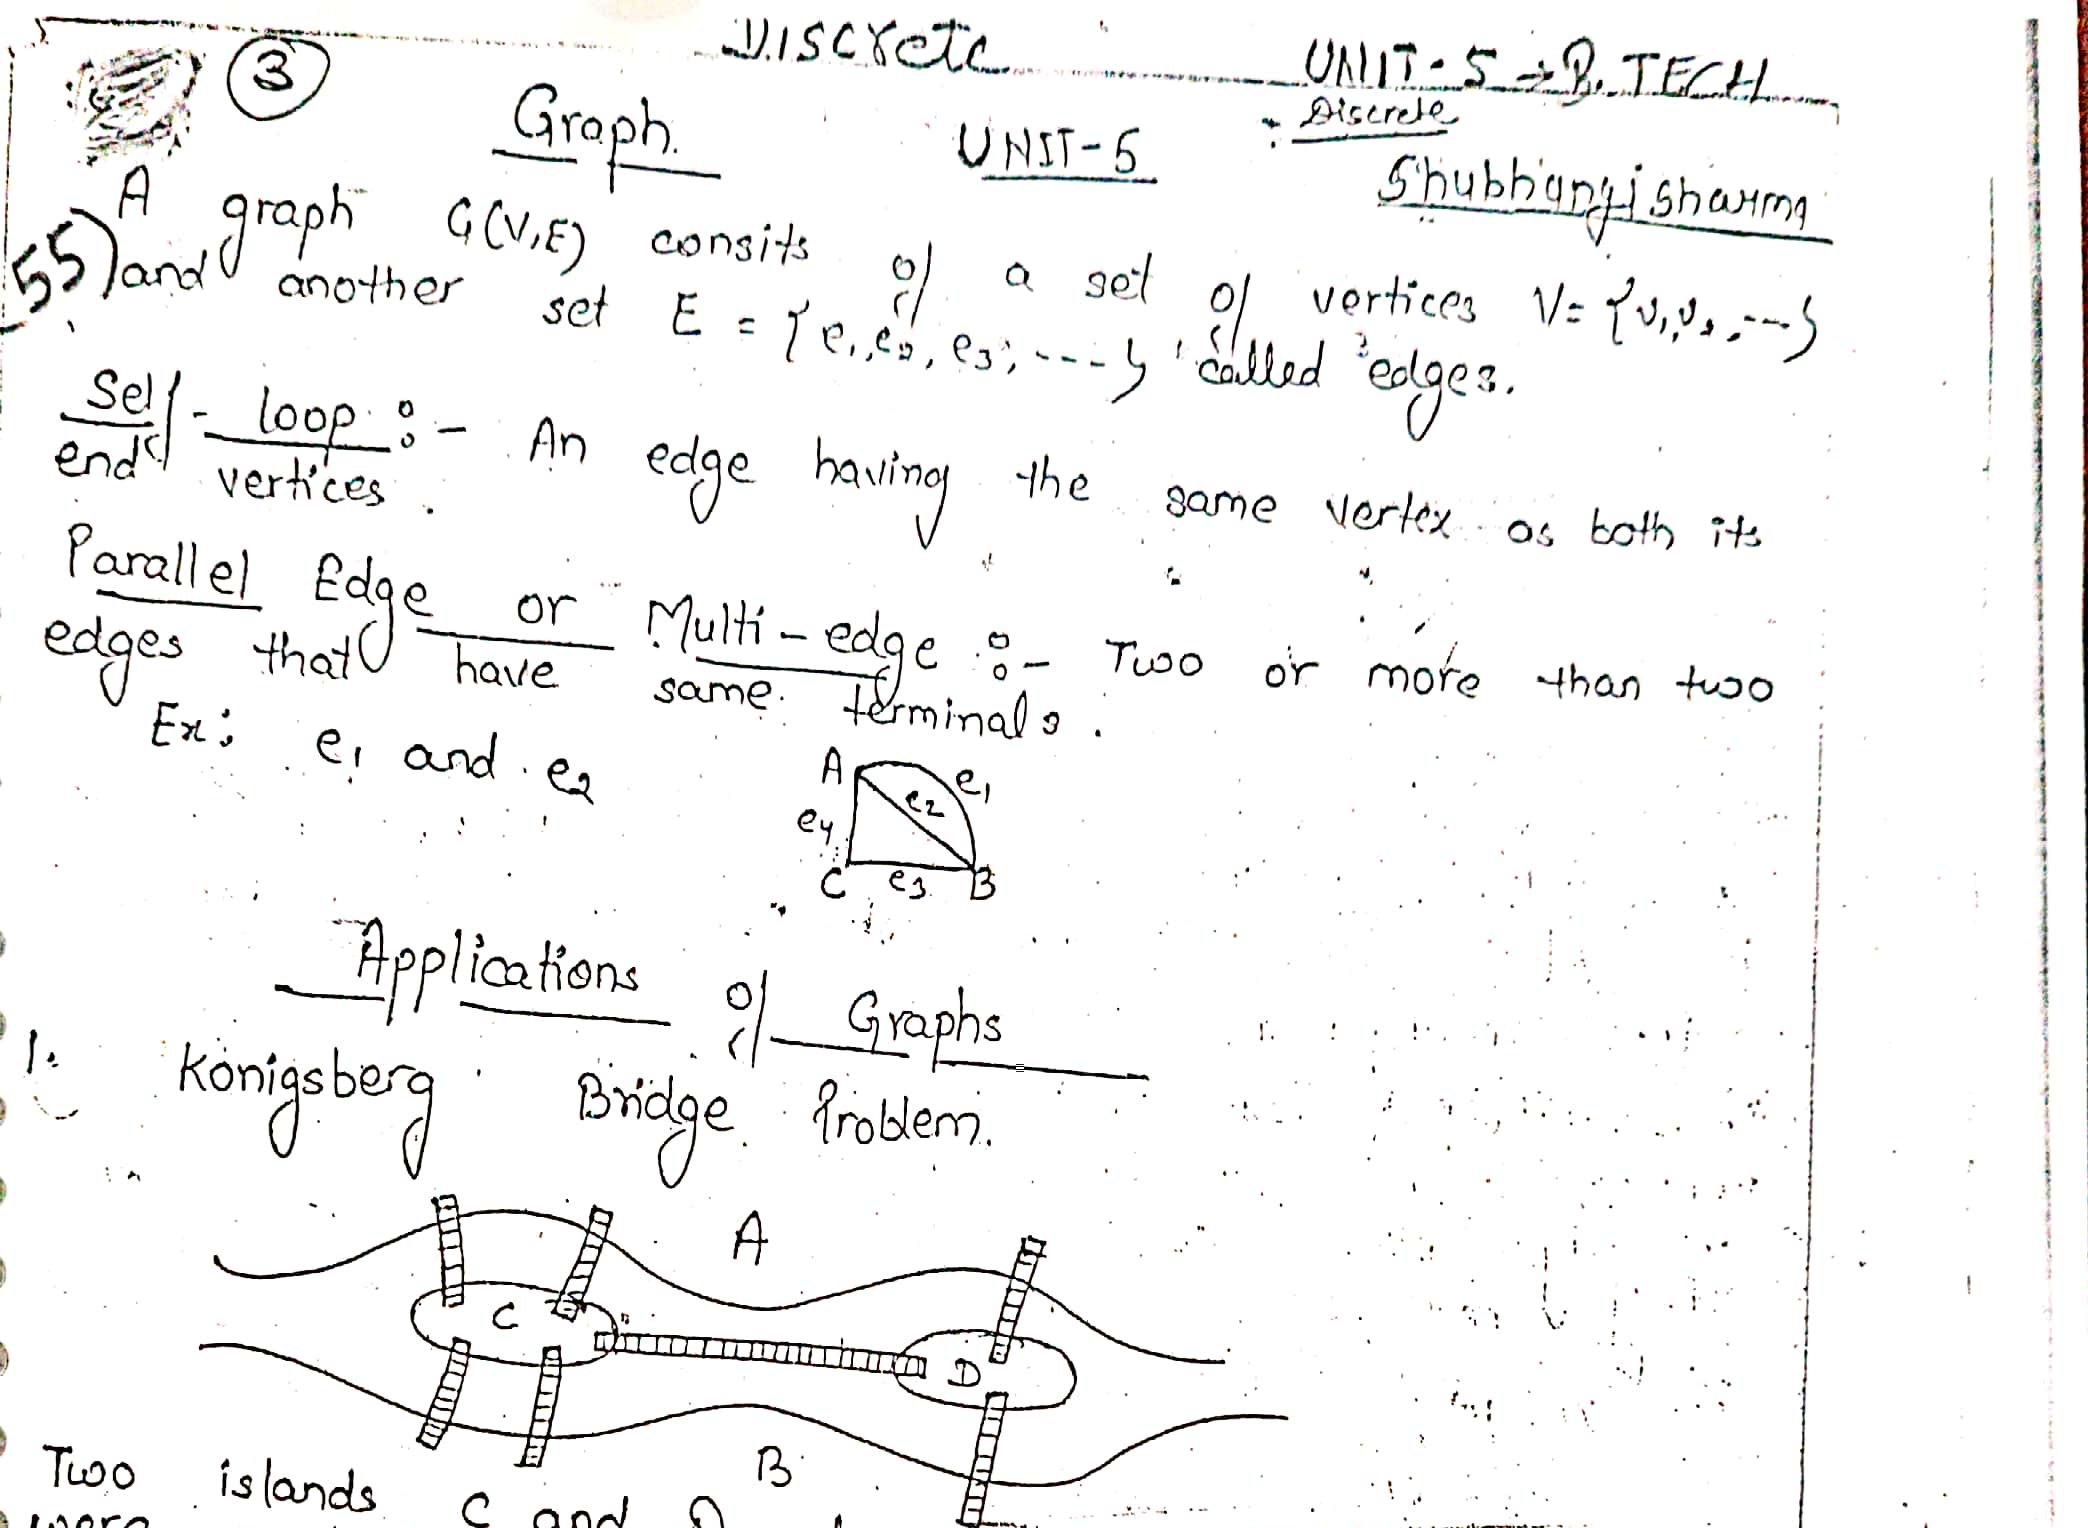 Discrete
UNIT-5 → B.TECH
3
Graph.
UNIT-5
Discrete
Shubhangi sharma
A graph G(V,E) consits of a set of vertices V= {v₁,v₂,---}
55) and another set E = {e₁,e₂,e₃,---} called edges.
Self-loop :- An edge having the same vertex as both its
end vertices.
Parallel Edge or Multi-edge :- Two or more than two
edges that have same terminals.
Ex: e₁ and e₂
A e₁
e₂
e₄
C e₃ B
Applications of Graphs
1. Königsberg Bridge Problem.
A
C
D
B
Two islands C and D
were